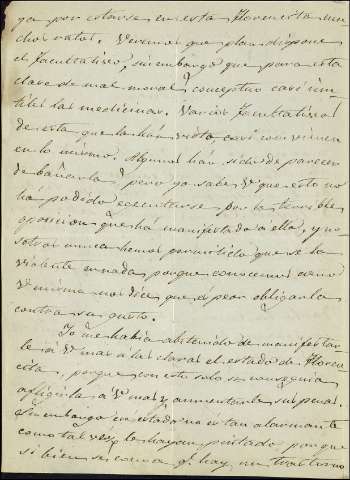 ya por estarse en esta Florencita mu-
chos ratos. Veremos que plan dispone
el facultativo, sin embargo que para esta
clase de mal moral, conceptuo casi inu-
tiles las medicinas. Varios facultativos
de esta que la han visto, casi convienen
en lo mismo. Algunos han sido de parecer
de bañarla, pero ya sabe V. que esto no
ha podido egecutarse por la terrible
oposicion que ha manifestado a ello, y no-
sotros nunca hemos permitido que se la
violente en nada, porque conocemos como
V. misma nos dice, que es peor obligarla
contra su gusto.
Yo me habia abstenido de manifestar-
le á V. mas a las claras el estado de Floren-
cita, porque con esto solo se conseguia
afligirla a V. mas y aumentarle sus penas.
Sin embargo su estado no es tan alarmante
como tal vez le hayan pintado porque
si bien es cierto q. hay un trastorno